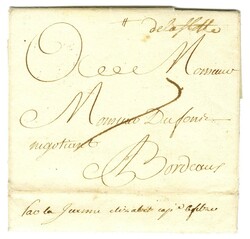 delaflotte
A Monsieur
Monsieur Dufour
negotiant
A Bordeaux
par la jeune elizabet capt